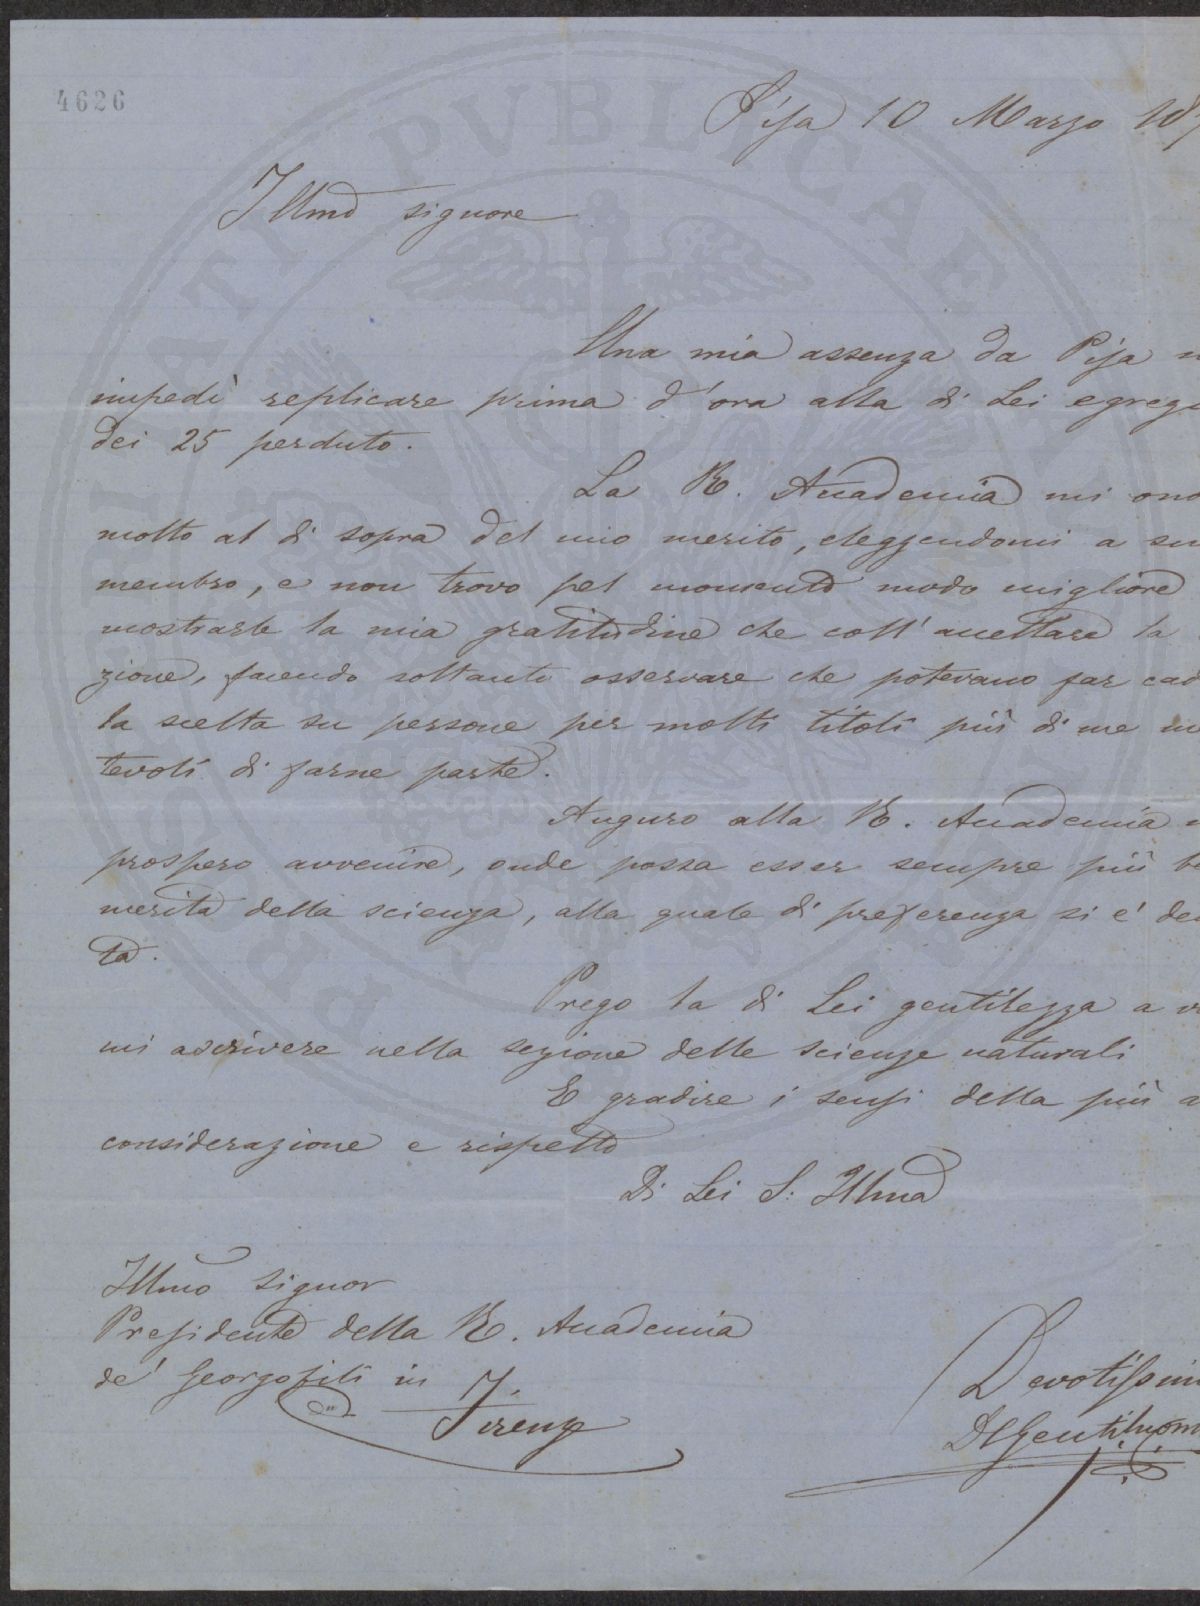 4626
Pisa 10 Marzo 18
Illmo signore
Una mia assenza da Pisa
impedì replicare prima d'ora alla di Lei egreg
dei 25 perduto.
La R. Accademia mi ono
molto al di sopra del mio merito, eleggendomi a su
membro, e non trovo pel momento modo migliore
mostrarle la mia gratitudine che coll'accettare la
zione, facendo soltanto osservare che potevano far cad
la scelta su persone per molti titoli più di me me
tevoli di farne parte.
Auguro alla R. Accademia
prospero avvenire, onde possa esser sempre più be
merita della scienza, alla quale di preferenza si e' de
ta.
Prego la di Lei gentilezza a v
mi ascrivere nella sezione delle scienze naturali
E gradire i sensi della più a
considerazione e rispetto
Di Lei S: Illma
Illmo Signor
Presidente della R. Accademia
de' Georgofili in Firenze
Devotissim
DCGentiluom